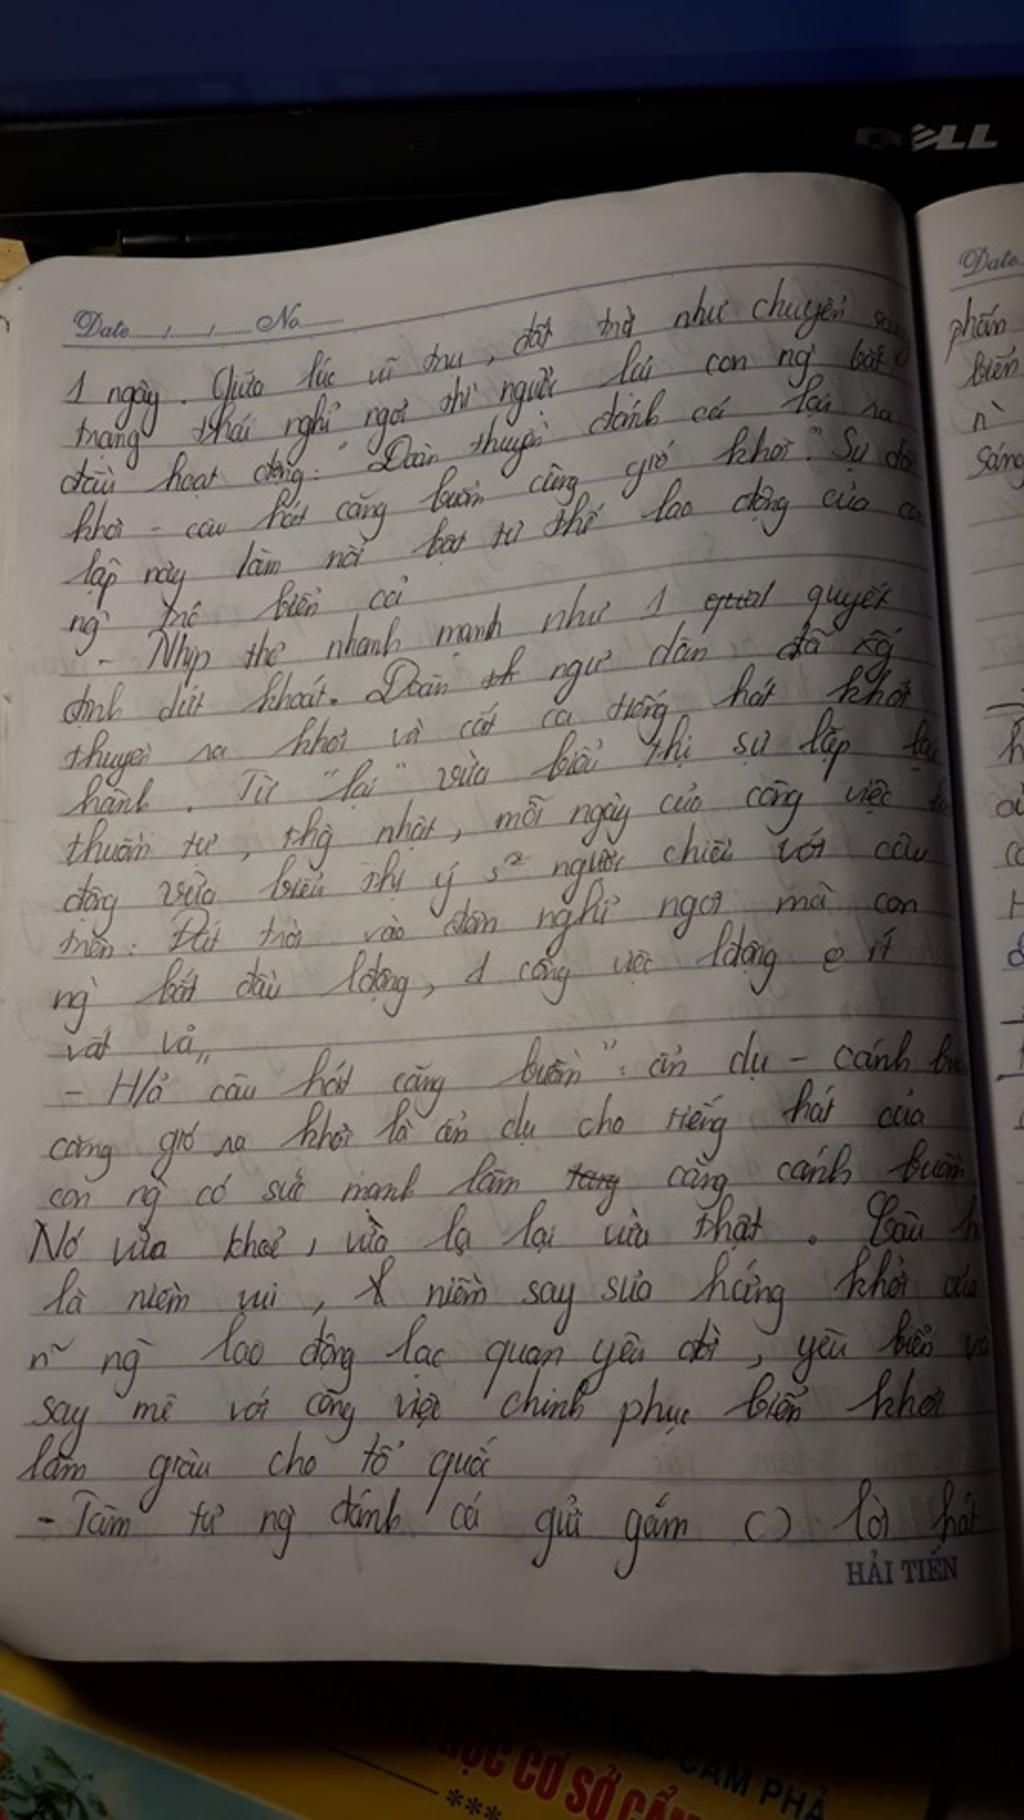 DELL
Date....../....../...... No.........
1 ngày. Giữa lúc vũ trụ, đất trời như chuyển sang
trạng thái nghỉ ngơi thì người lái con ng` bắt
đầu hoạt động: "Đoàn thuyền đánh cá lại ra
khơi - câu hát căng buồm cùng gió khơi". Sự đối
lập này làm nổi bật tư thế lao động của con
ng` trc biển cả
- Nhịp thơ nhanh mạnh như 1 quyết
định dứt khoát. Đoàn ngư dân đã xg
thuyền ra khơi và cất cao tiếng hát khởi
hành. Từ "lại" vừa biểu thị sự lặp lại
thuần tự, thg nhật, mỗi ngày của công việc lao
động vừa biểu thị ý s² ngược chiều với câu
trên: Đất trời vào đêm nghỉ ngơi mà con
ng` bắt đầu lđộng, 1 công việc lđộng e ít
vất vả,,
- H/ả câu hát căng buồm": ẩn dụ - cánh buồm
căng gió ra khơi là ẩn dụ cho tiếng hát của
con ng` có sức mạnh làm căng cánh buồm
Nó vừa khoẻ, vừa lạ lại vừa thật. Câu hát
là niềm vui, niềm say sưa hứng khởi của
n~ ng` lao động lạc quan yêu đời, yêu biển và
say mê với công việc chinh phục biển khơi
làm giàu cho tổ quốc
- Tâm tư ng` đánh cá gửi gắm () lời hát
HẢI TIẾN
Date
phấn
biển
n`
sáng
TẠO CẨM PHẢ
HỌC CƠ SỞ CẨM
***